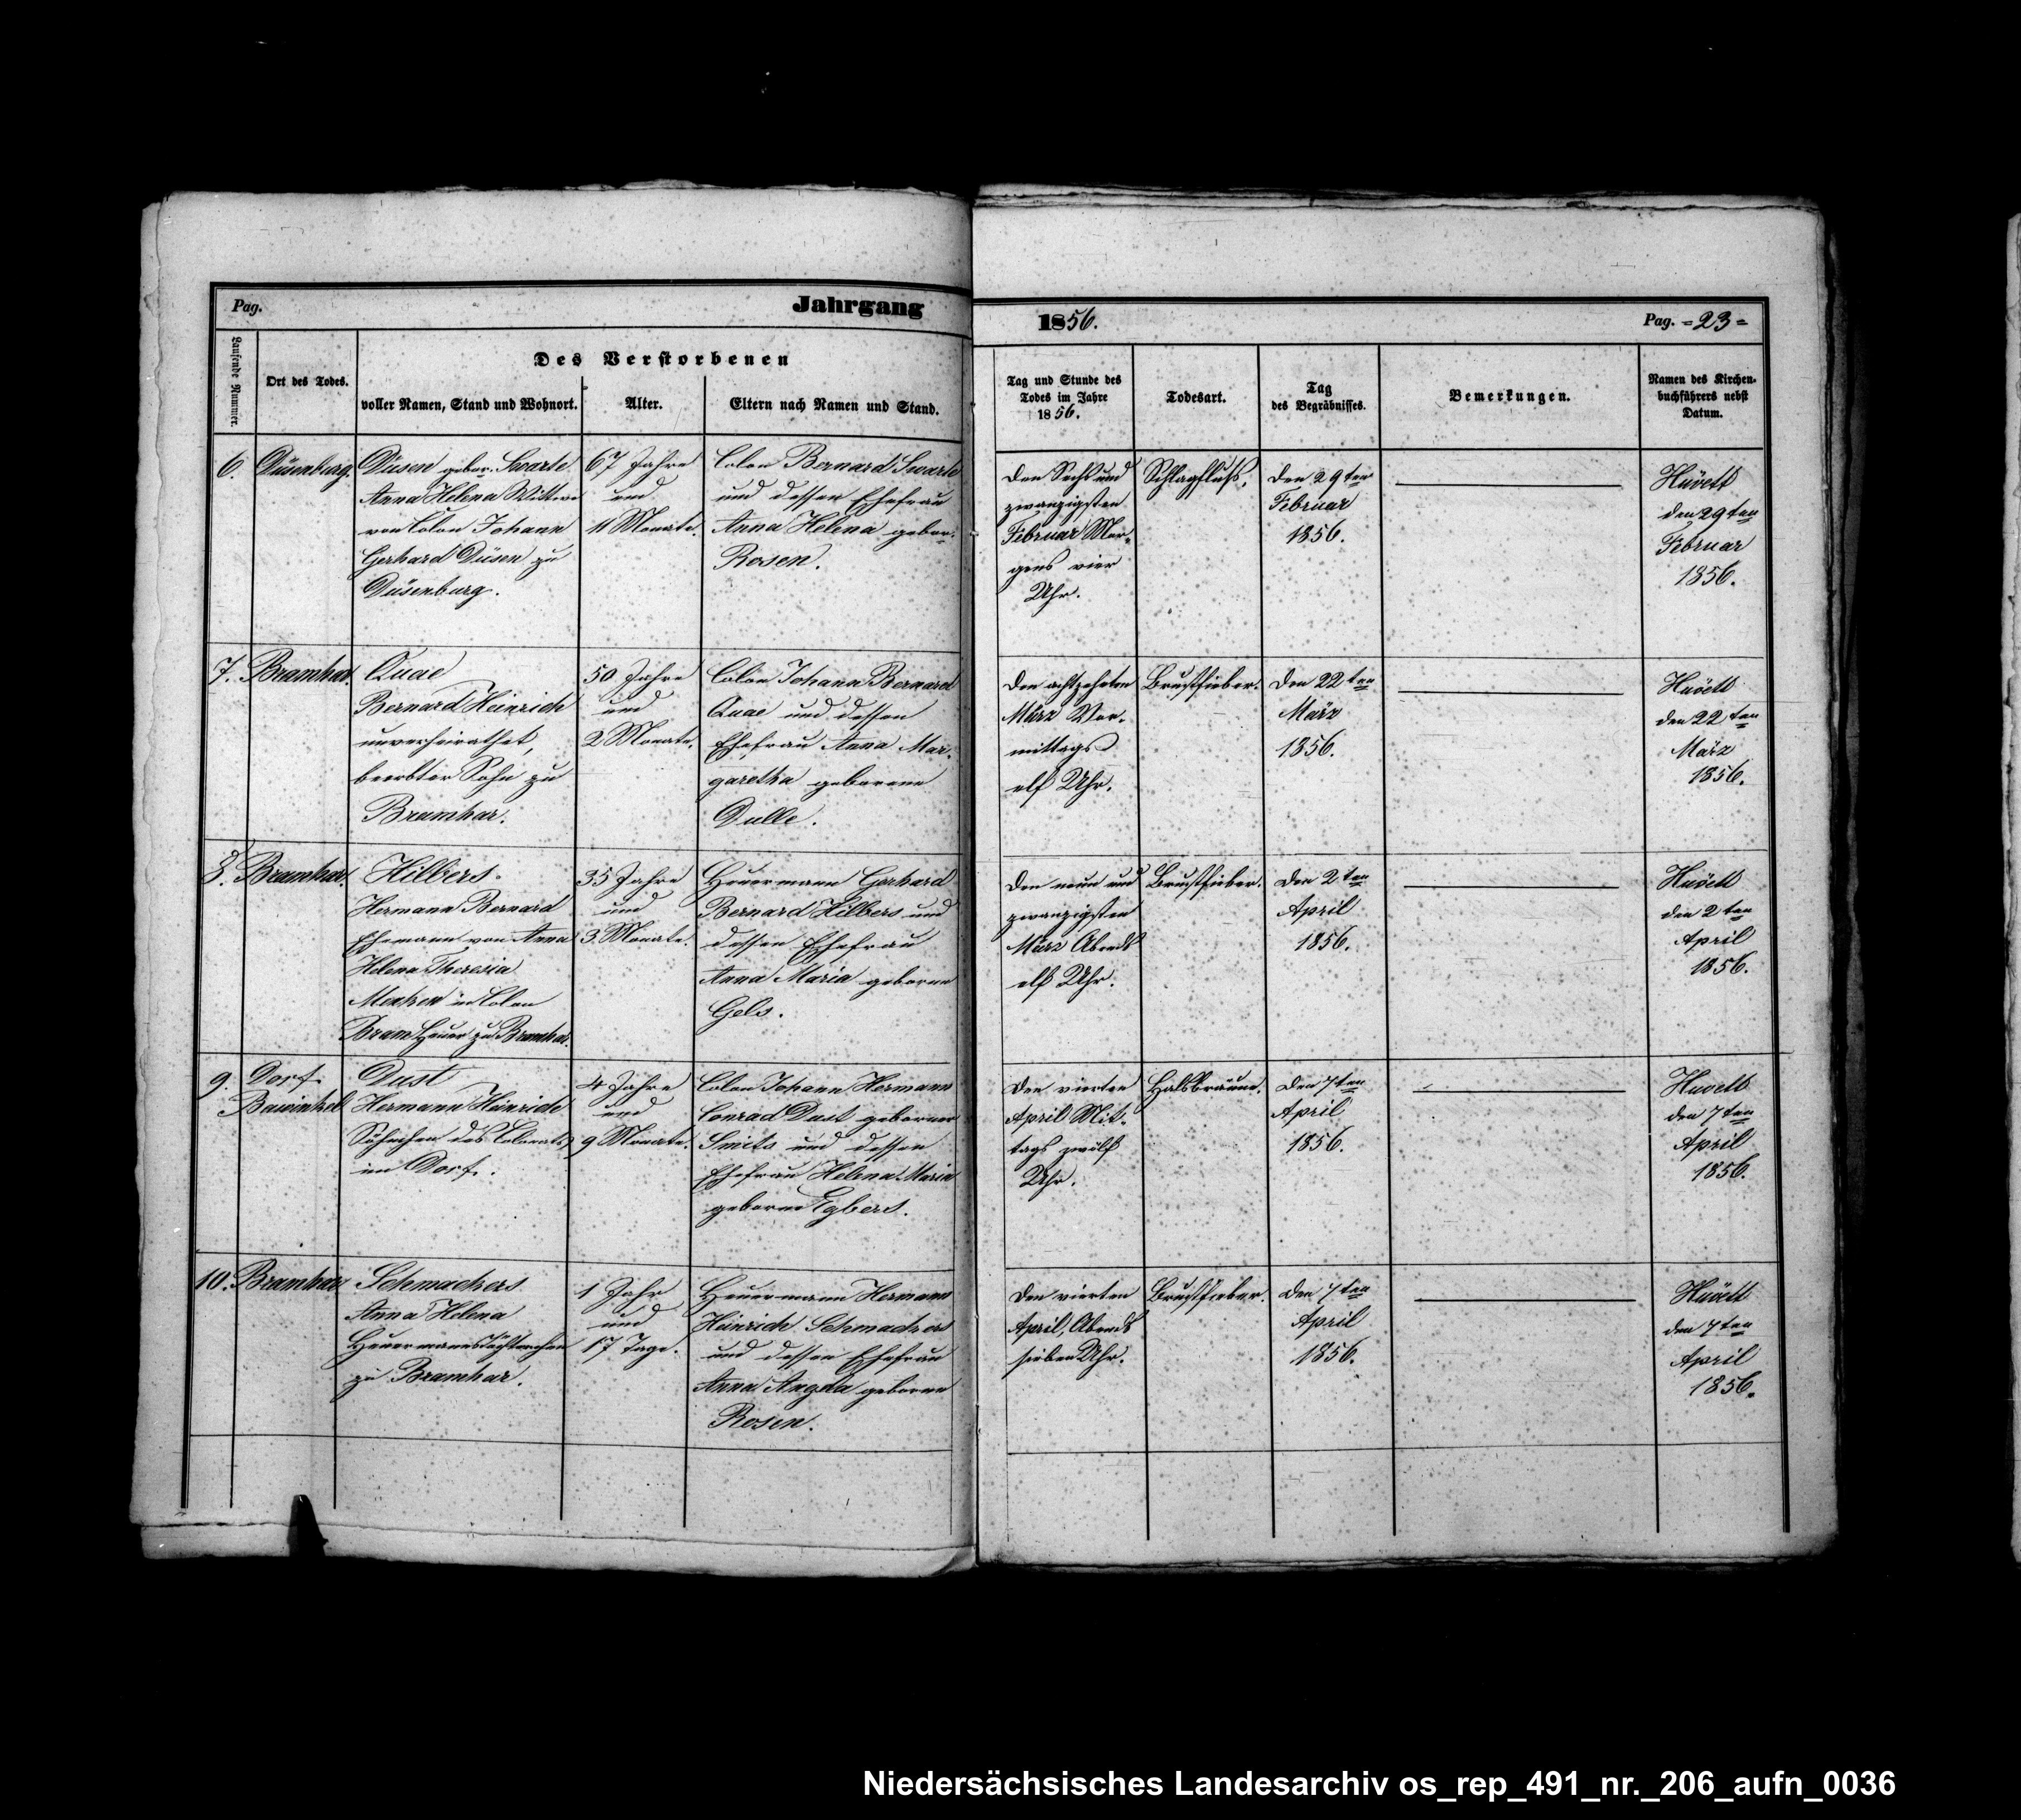 Pag.
Jahrgang
1856.
Pag. =23=
Laufende Nummer.
Ort des Todes.
Des Verstorbenen
voller Namen, Stand und Wohnort.
Alter.
Eltern nach Namen und Stand.
Tag und Stunde des
Todes im Jahre
1856.
Todesart.
Tag
des Begräbnisses.
Bemerkungen.
Namen des Kirchen-
buchführers nebst
Datum.
6.
Düsenburg.
Düsen gebor. Swarte
Anna Helena Wittwe
von Colon Johann
Gerhard Düsen zu
Düsenburg.
67 Jahre
und
11 Monate.
Colon Bernard Swarte
und dessen Ehefrau
Anna Helena gebor.
Rosen.
Den Sechs und
zwanzigsten
Februar Mor-
gens vier
Uhr.
Schlagfluß.
Den 29ten
Februar
1856.
Hüvett
den 29ten
Februar
1856.
7.
Bramhar.
Quae
Bernard Heinrich
unverheirathet,
beerbter Sohn zu
Bramhar.
50 Jahre
und
2 Monate.
Colon Johann Bernard
Quae und dessen
Ehefrau Anna Mar-
garetha geborene
Dulle.
Den achtzehnten
März Vor-
mittags
elf Uhr.
Brustfieber.
Den 22ten
März
1856.
Huvett
den 22ten
März
1856.
8.
Bramhar.
Hilbers.
Hermann Bernard
Ehemann von Anna
Helena Theresia
in Colon
Bram Heuer zu Bramhar.
35 Jahre
und
3 Monate.
Heuermann Gerhard
Bernard Hilbers und
dessen Ehefrau
Anna Maria geborne
Gels.
Den neun und
zwanzigsten
März Abends
elf Uhr.
Brustfieber.
Den 2ten
April
1856.
Huvett
den 2ten
April
1856.
9.
Dorf
Bawinkel
Dust
Hermann Heinrich
Söhnchen des Colonats
im Dorf.
4 Jahre
und
9 Monate.
Colon Johann Hermann
Conrad Dust geborner
Smits und dessen
Ehefrau Helena Maria
geborne Egbers.
Den vierten
April Mit-
tags zwölf
Uhr.
Halsbräune.
Den 7ten
April
1856.
Huvett
den 7ten
April
1856.
10.
Bramhar
Schmackers
Anna Helena
Heuermannstöchterchen
zu Bramhar.
1 Jahr
und
17 Tage.
Heuermann Hermann
Heinrich Schmackers
und dessen Ehefrau
Anna Angela geborne
Rosen.
Den vierten
April, Abends
sieben Uhr.
Brustfieber.
Den 7ten
April
1856.
Hüvett
den 7ten
April
1856.
Niedersächsisches Landesarchiv os_rep_491_nr._206_aufn_0036